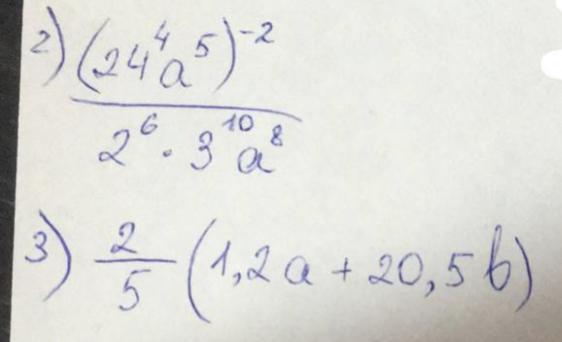 2) (24⁴a⁵)⁻²
2⁶ · 3¹⁰a⁸
3) 2/5 (1,2a + 20,5b)